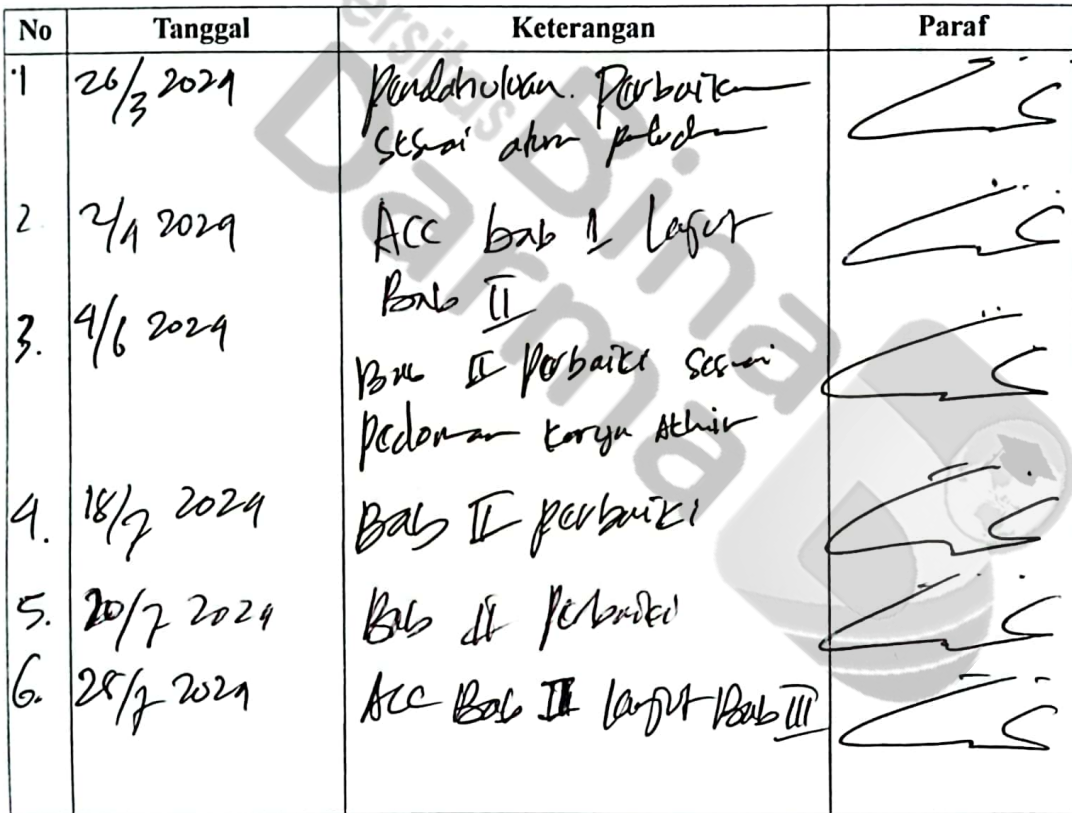 No Tanggal Keterangan Paraf
1 26/3 2024 Pendahuluan. Perbaikan
sesuai alur
2. 2/4 2024 ACC bab I lanjut
Bab II
3. 4/6 2024
Bab II Perbaiki sesuai
Pedoman Karya Akhir
4. 18/7 2024 Bab II perbaiki
5. 20/7 2024 Bab II Perbaiki
6. 25/7 2024 Acc Bab II lanjut Bab III
Universitas
Bina
Darma